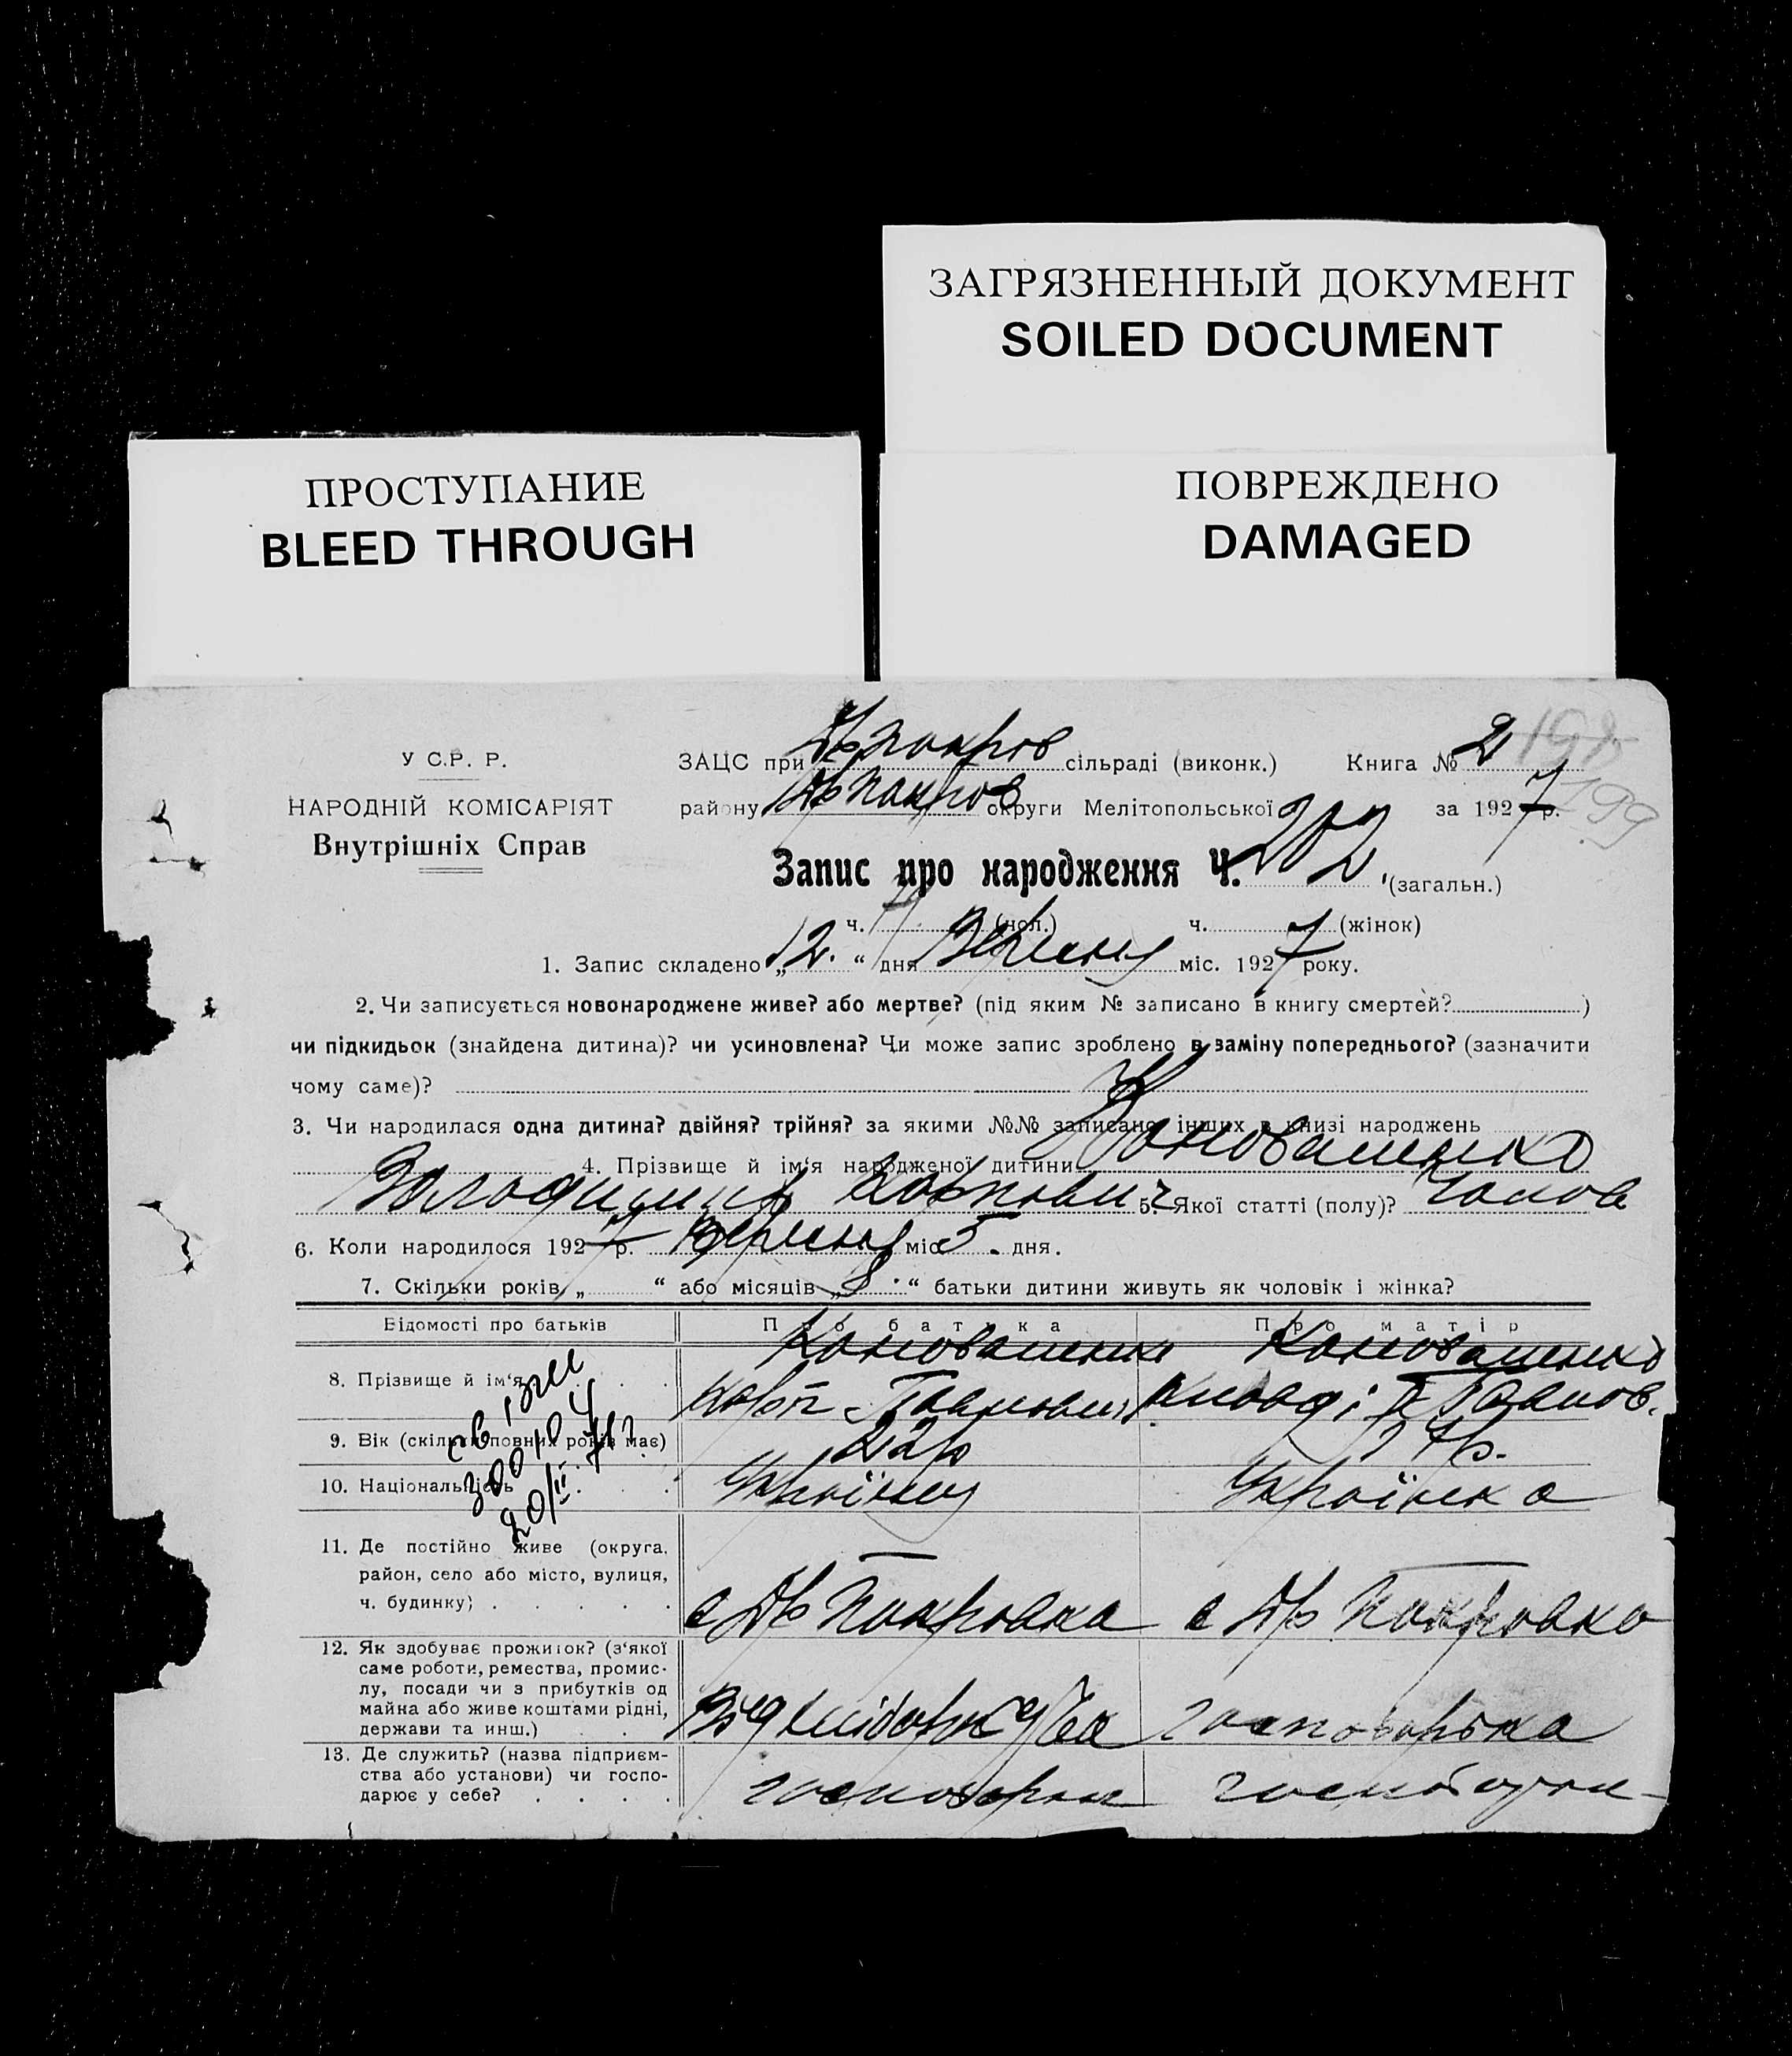 ЗАГРЯЗНЕННЫЙ ДОКУМЕНТ
SOILED DOCUMENT
ПРОСТУПАНИЕ
BLEED THROUGH
ПОВРЕЖДЕНО
DAMAGED
У С.Р. Р.
НАРОДНІЙ КОМІСАРІЯТ
Внутрішніх Справ
ЗАЦС при сільраді (виконк.) Книга № 2
району округи Мелітопольської за 1927 р.
199
Запис про народження Ч. 202 (загальн.)
ч. (чол.) ч. 7 (жінок)
1. Запис складено „12.“ дня Вересня міс. 1927 року.
2. Чи записується новонароджене живе? або мертве? (під яким № записано в книгу смертей? )
чи підкидьок (знайдена дитина)? чи усиновлена? Чи може запис зроблено в заміну попереднього? (зазначити
чому саме)?
3. Чи народилася одна дитина? двійня? трійня? за якими №№ записано інших в книзі народжень
4. Прізвище й ім‘я народженої дитини Коноваленко
Володимир Карпович 5. Якої статті (полу)? Чолов
6. Коли народилося 1927 р. Вересня міс 5. дня.
7. Скільки років „ “ або місяців „8.“ батьки дитини живуть як чоловік і жінка?
Відомості про батьків Про батька Про матір
8. Прізвище й ім‘я Коноваленко Коноваленко
Карп Павлович
9. Вік (скільки повних років має) 22р
10. Національність Українец Українка
11. Де постійно живе (округа,
район, село або місто, вулиця,
ч. будинку) с Покровка с Покровка
12. Як здобуває прожиток? (з‘якої
саме роботи, ремества, промис-
лу, посади чи з прибутків од
майна або живе коштами рідні,
держави та инш.)
13. Де служить? (назва підприєм-
ства або установи) чи госпо-
дарює у себе?